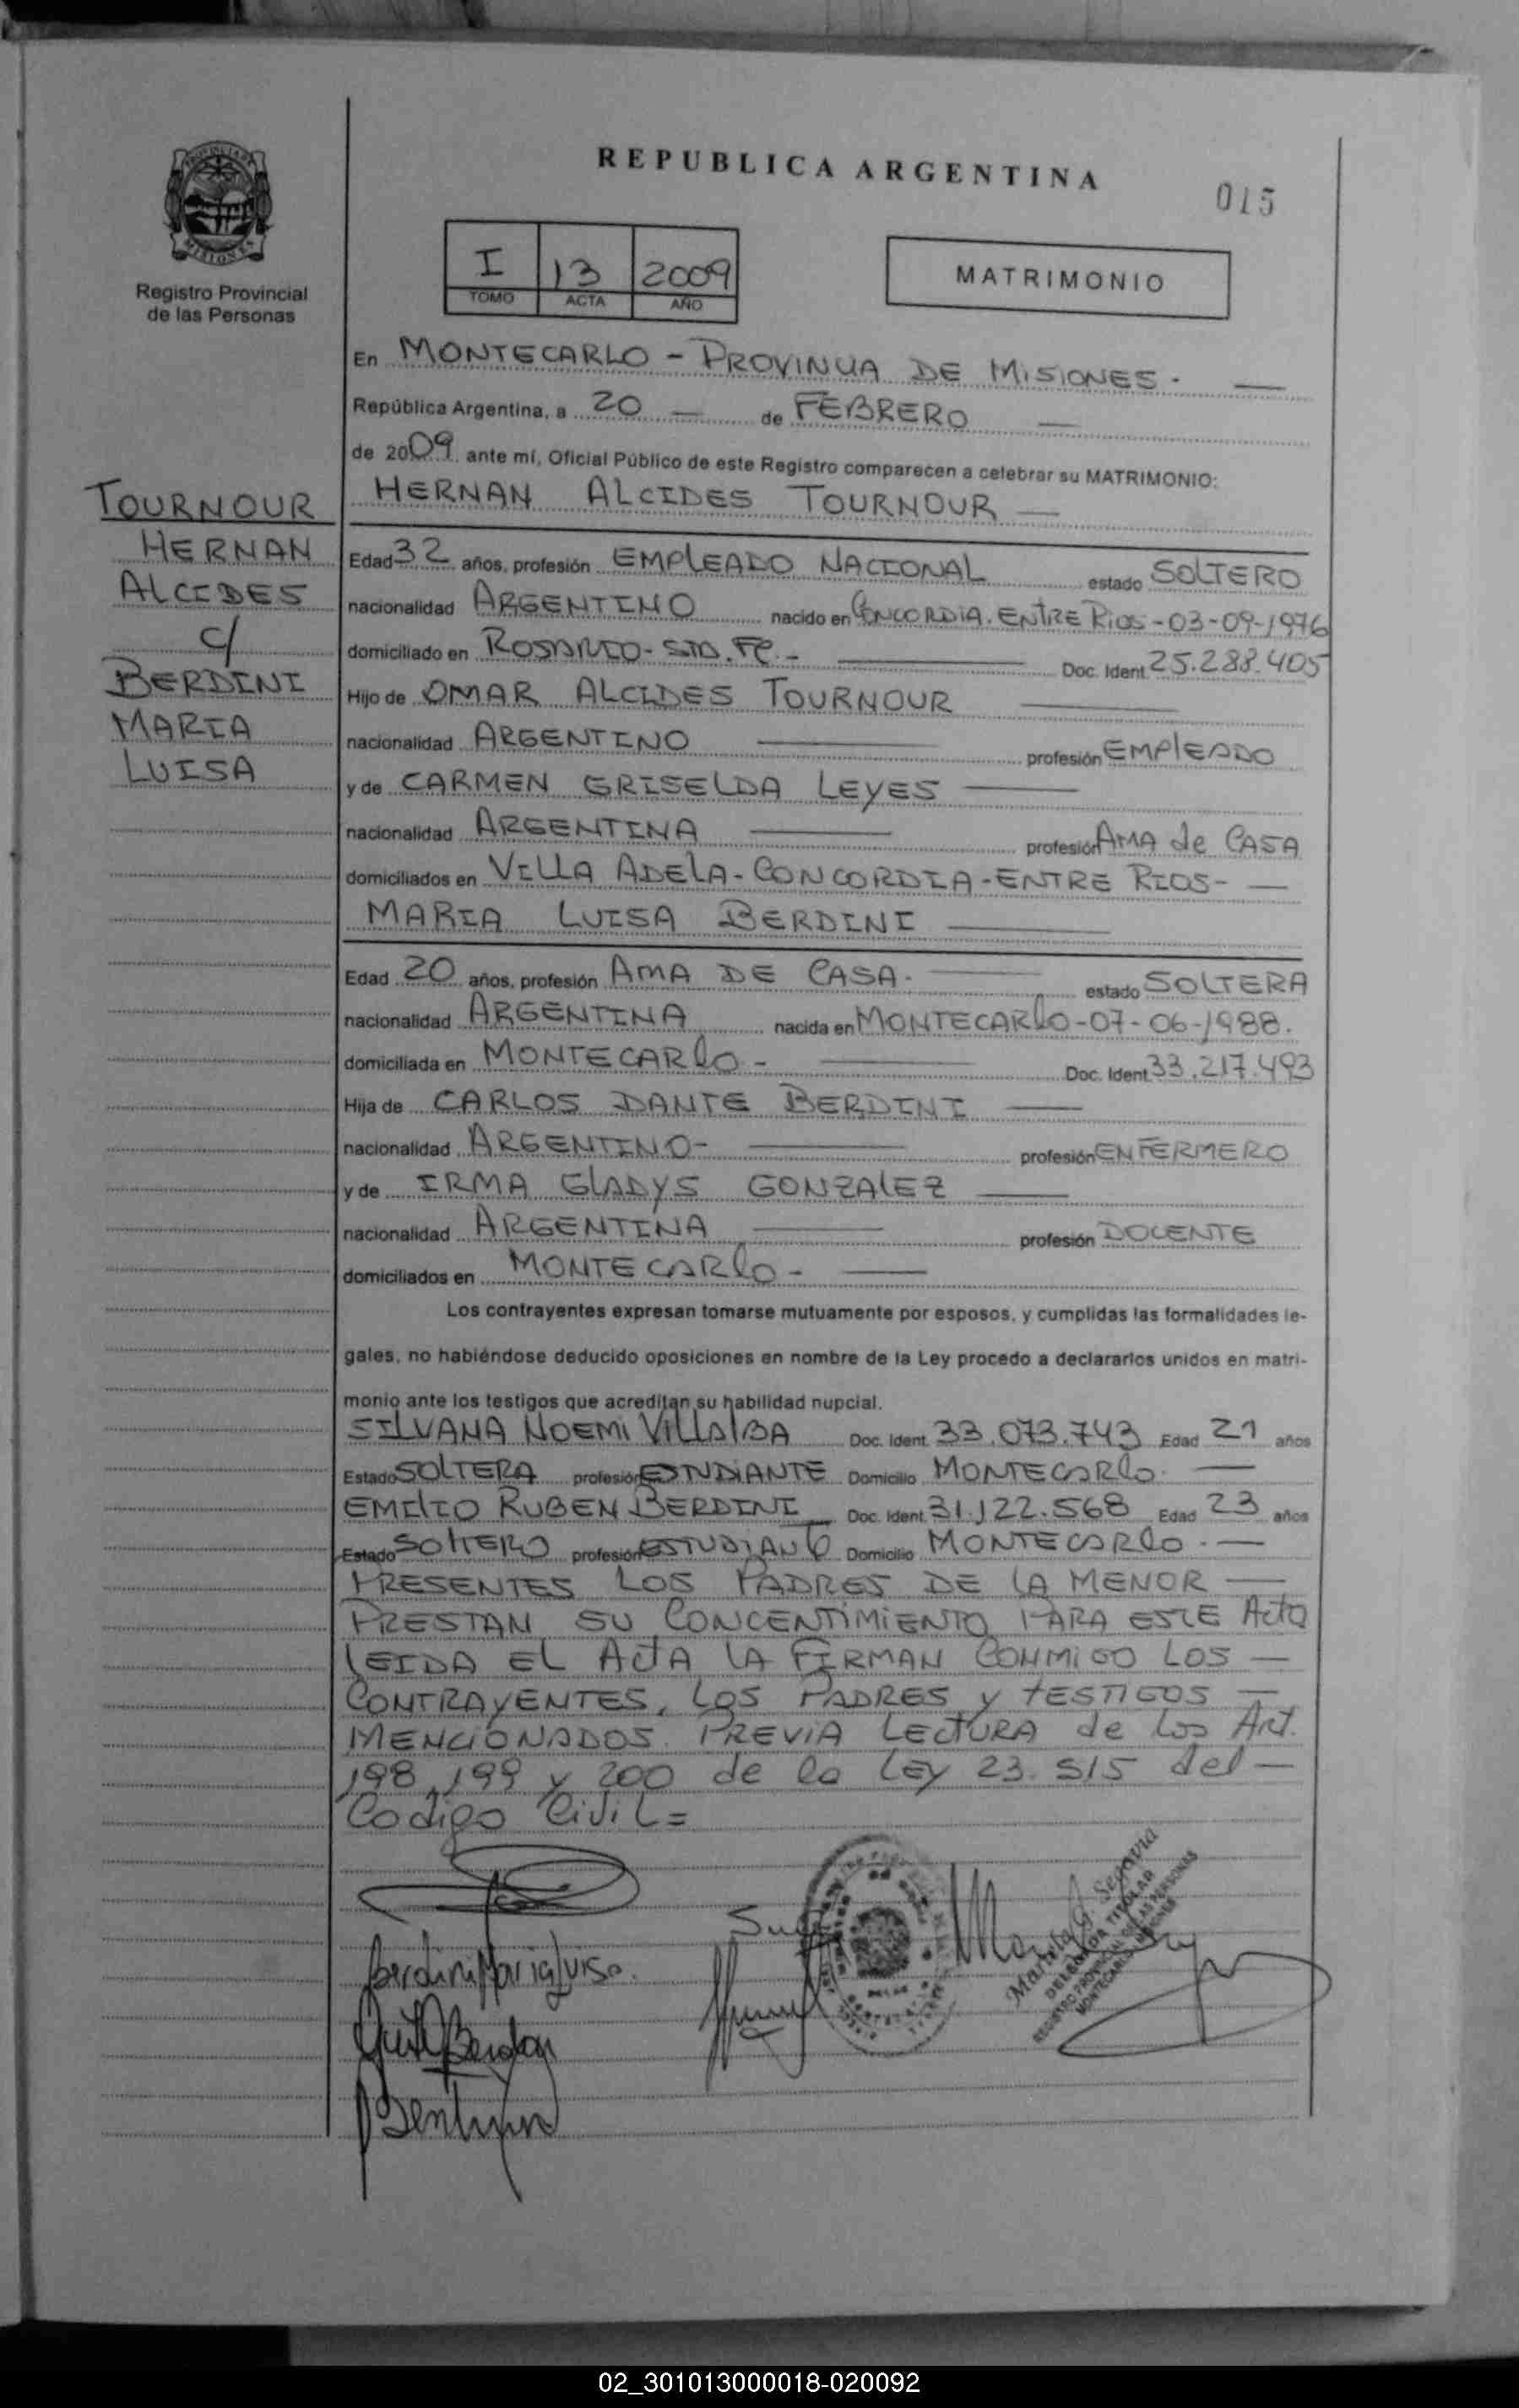 REPUBLICA ARGENTINA
015
PROVINCIA DE MISIONES
Registro Provincial
de las Personas
I 13 2009
TOMO ACTA AÑO
MATRIMONIO
En MONTECARLO - PROVINCIA DE MISIONES. —
República Argentina, a 20 — de FEBRERO —
de 2009 ante mí, Oficial Público de este Registro comparecen a celebrar su MATRIMONIO:
HERNAN ALCIDES TOURNOUR —
TOURNOUR
HERNAN
ALCIDES
c/
BERDINI
MARIA
LUISA
Edad 32 años, profesión EMPLEADO NACIONAL estado SOLTERO
nacionalidad ARGENTINO nacido en CONCORDIA. ENTRE RIOS - 03-09-1976
domiciliado en ROSARIO - STA. FE. - — Doc. Ident. 25.288.405
Hijo de OMAR ALCIDES TOURNOUR —
nacionalidad ARGENTINO — profesión EMPLEADO
y de CARMEN GRISELDA LEYES —
nacionalidad ARGENTINA — profesión AMA de CASA
domiciliados en VILLA ADELA - CONCORDIA - ENTRE RIOS - —
MARIA LUISA BERDINI —
Edad 20 años, profesión AMA DE CASA. — estado SOLTERA
nacionalidad ARGENTINA nacida en MONTECARLO - 07-06-1988.
domiciliada en MONTECARLO - — Doc. Ident. 33.217.493
Hija de CARLOS DANTE BERDINI —
nacionalidad ARGENTINO - — profesión ENFERMERO
y de IRMA GLADYS GONZALEZ —
nacionalidad ARGENTINA — profesión DOCENTE
domiciliados en MONTECARLO - —
Los contrayentes expresan tomarse mutuamente por esposos, y cumplidas las formalidades le-
gales, no habiéndose deducido oposiciones en nombre de la Ley procedo a declararlos unidos en matri-
monio ante los testigos que acreditan su habilidad nupcial.
SILVANA NOEMI VILLALBA Doc. Ident. 33.073.743 Edad 21 años
Estado SOLTERA profesión ESTUDIANTE Domicilio MONTECARLO. —
EMILIO RUBEN BERDINI Doc. Ident. 31.122.568 Edad 23 años
Estado SOLTERO profesión ESTUDIANTE Domicilio MONTECARLO. —
PRESENTES LOS PADRES DE LA MENOR —
PRESTAN SU CONCENTIMIENTO PARA ESTE Acto
LEIDA EL ACTA LA FIRMAN CONMIGO LOS —
CONTRAYENTES, LOS PADRES y TESTIGOS —
MENCIONADOS. PREVIA LECTURA de los Art.
198, 199 y 200 de la LEY 23.515 del —
Codigo Civil =
Berdini Maria Luisa.
Mariela G. Segovia
DELEGADA TITULAR
REGISTRO PROVINCIAL DE LAS PERSONAS
MONTECARLO - MISIONES
02_301013000018-020092